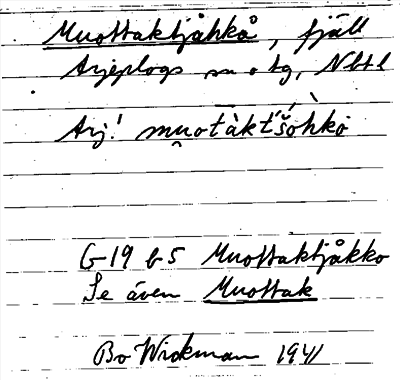 Muottaktjåhkå, fjäll
Arjeplogs sn o tg, Nbtl
Arj! mu̯otàkt́šòhkò
G-19 b5 Muottaktjåkko
Se även Muottak
Bo Wickman 1941